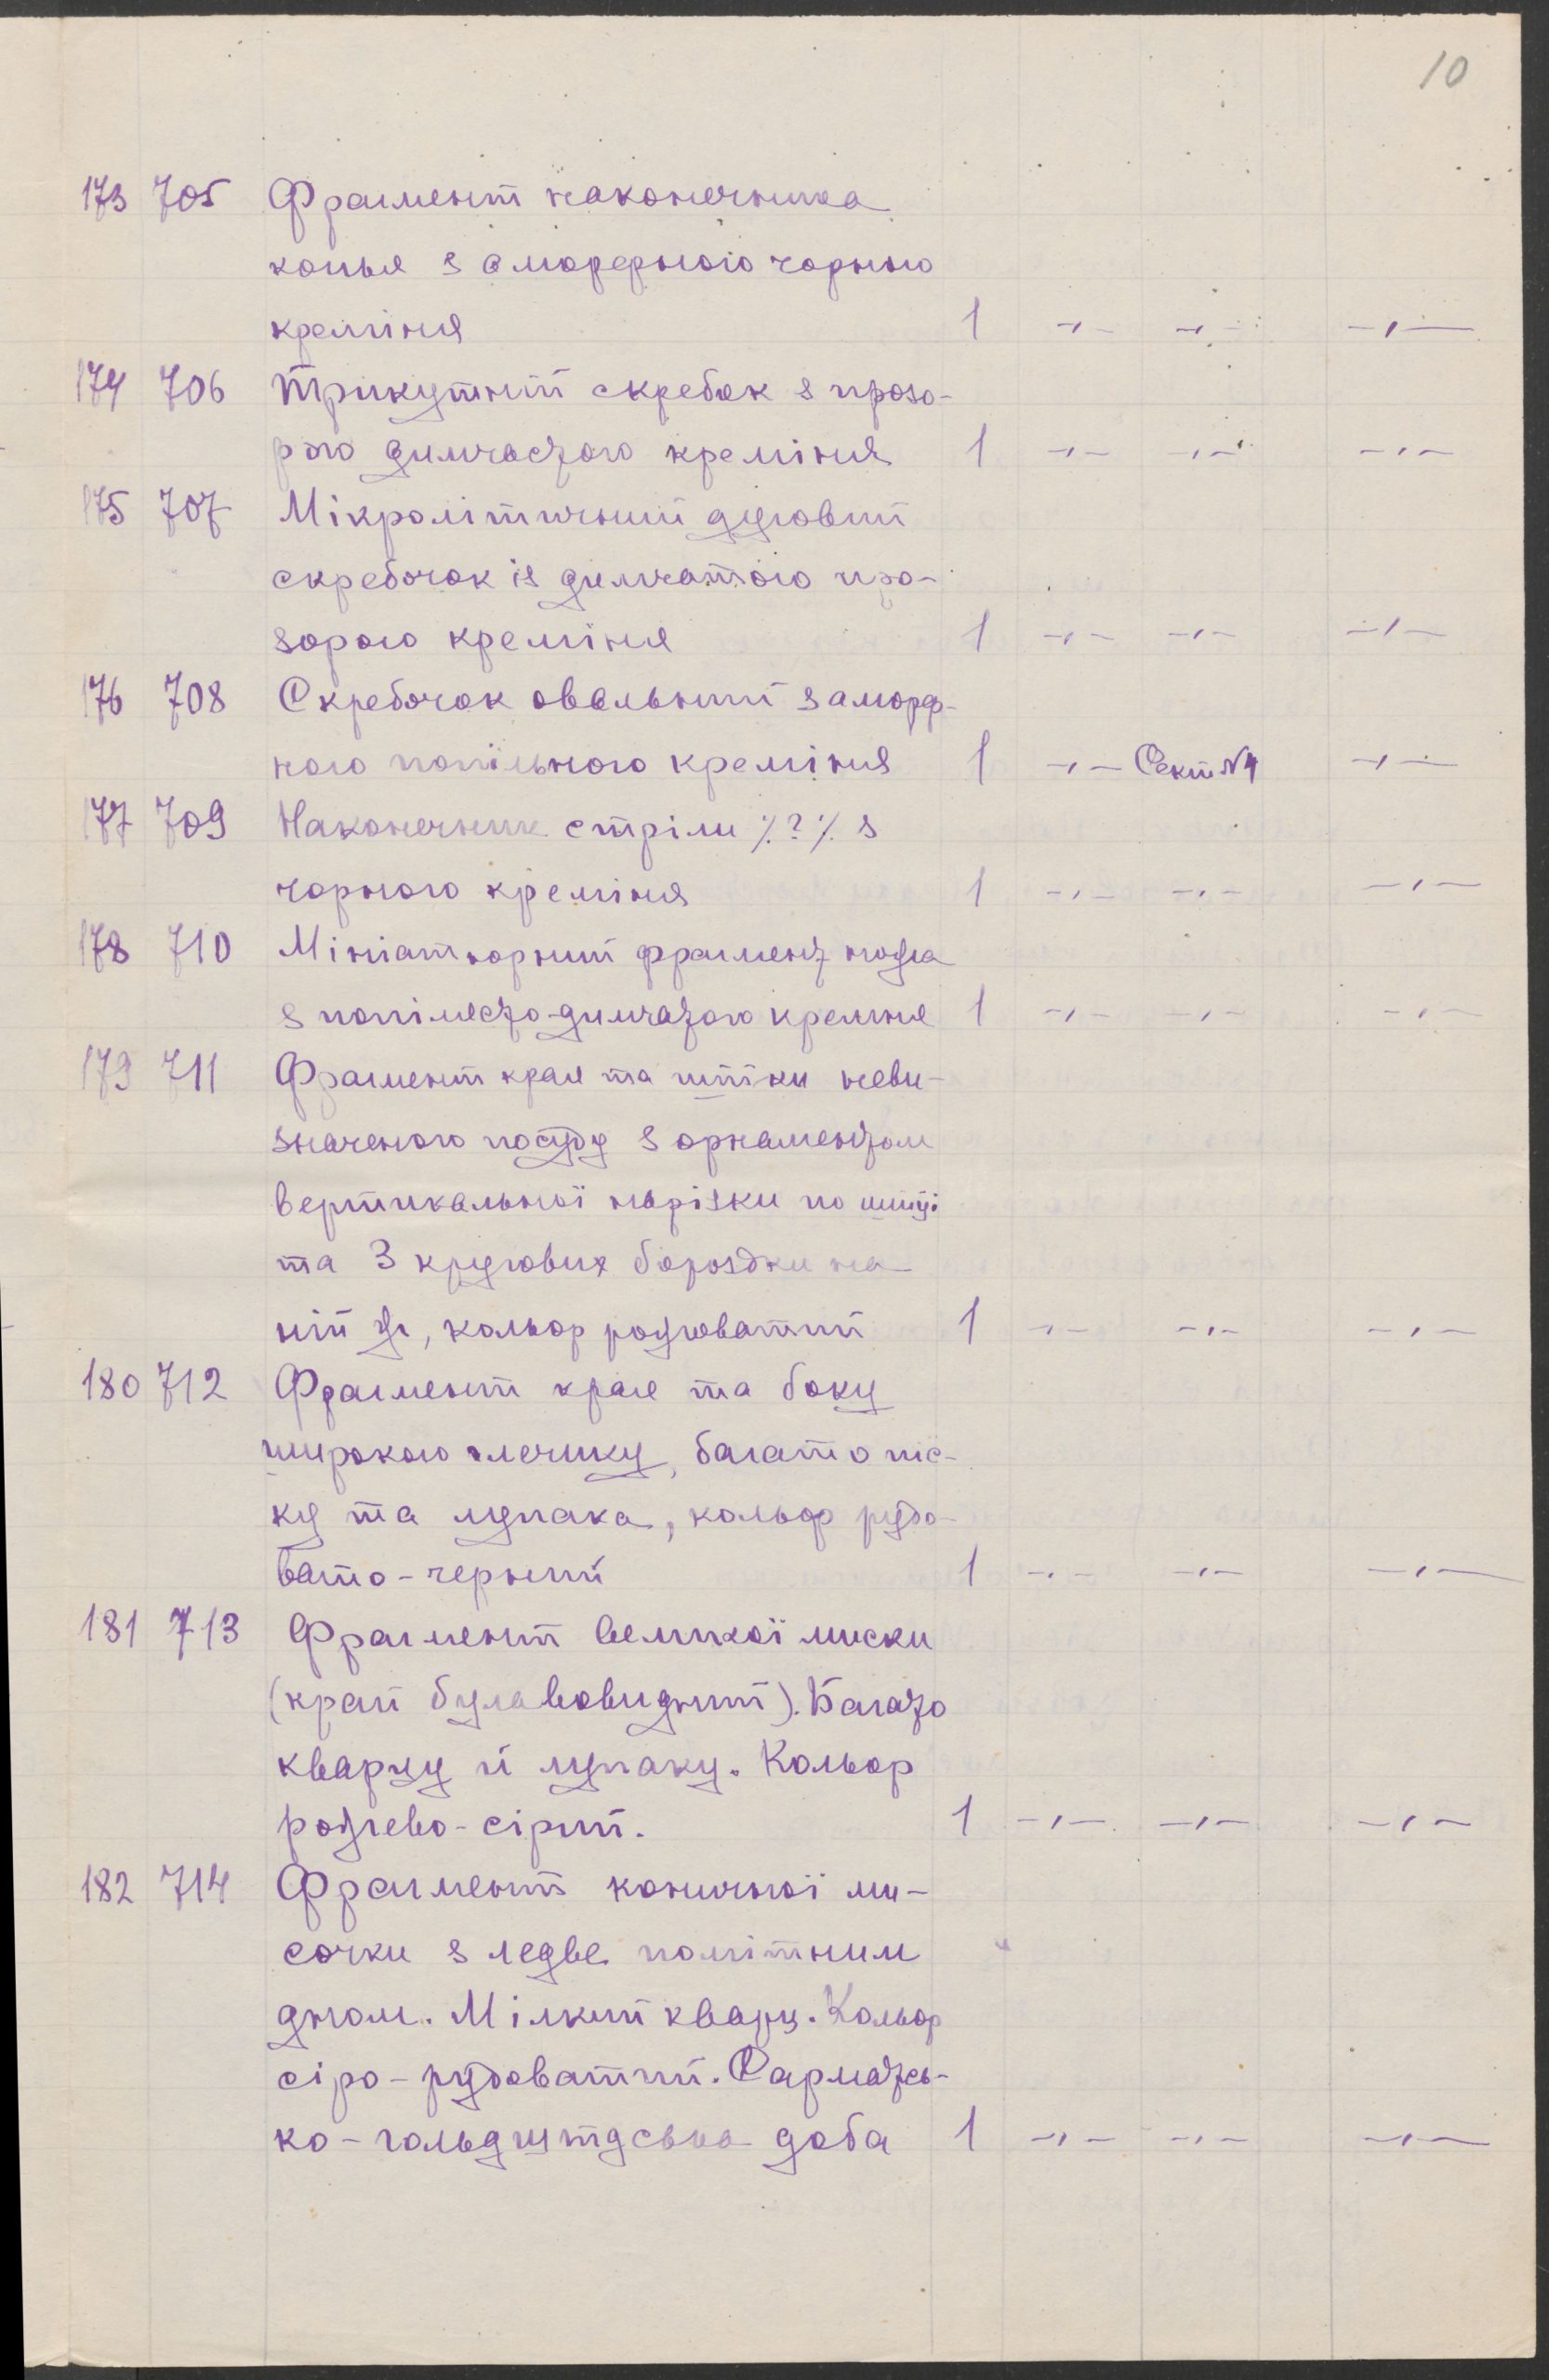 10
173 705 Фрагмент наконечника
копья з аморфрного чорного
кремiня 1 -,- -,- -,-
174 706 Трикутний скребок з прозо-
рого димчастого кремiня 1 -,- -,- -,-
175 707 Мiкролiтичний дуговий
скребочок iз димчатого про-
зорого кремiня 1 -,- -,- -,-
176 708 Скребочок овальний з аморф-
ного попiльного кремiня 1 -,- Сект №4 -,-
177 709 Наконечник стрiли %?% з
чорного кремiня 1 -,- -,- -,-
178 710 Мiнiатюрний фрагмент ножа
з попiлясто-димчатого кремня 1 -,- -,- -,-
179 711 Фрагмент края та шийки неви-
значеного посуду з орнаментом
вертикальної нарiзки по шийцi
та 3 кругових бороздки на
нiй же, кольор рожоватий 1 -,- -,- -,-
180 712 Фрагмент края та боку
широкого глечику, багато пiс-
ку та лупака, кольор рудо-
вато-черный 1 -,- -,- -,-
181 713 Фрагмент великої миски
(край булавовидний). Багато
кварцу й лупаку. Кольор
рожево-сiрий. 1 -,- -,- -,-
182 714 Фрагмент конiчної ми-
сочки з ледве помiтним
дном. Мiлкий кварц. Кольор
сiро-рудоватий. Сарматсь-
ко-гольдштдська доба 1 -,- -,- -,-